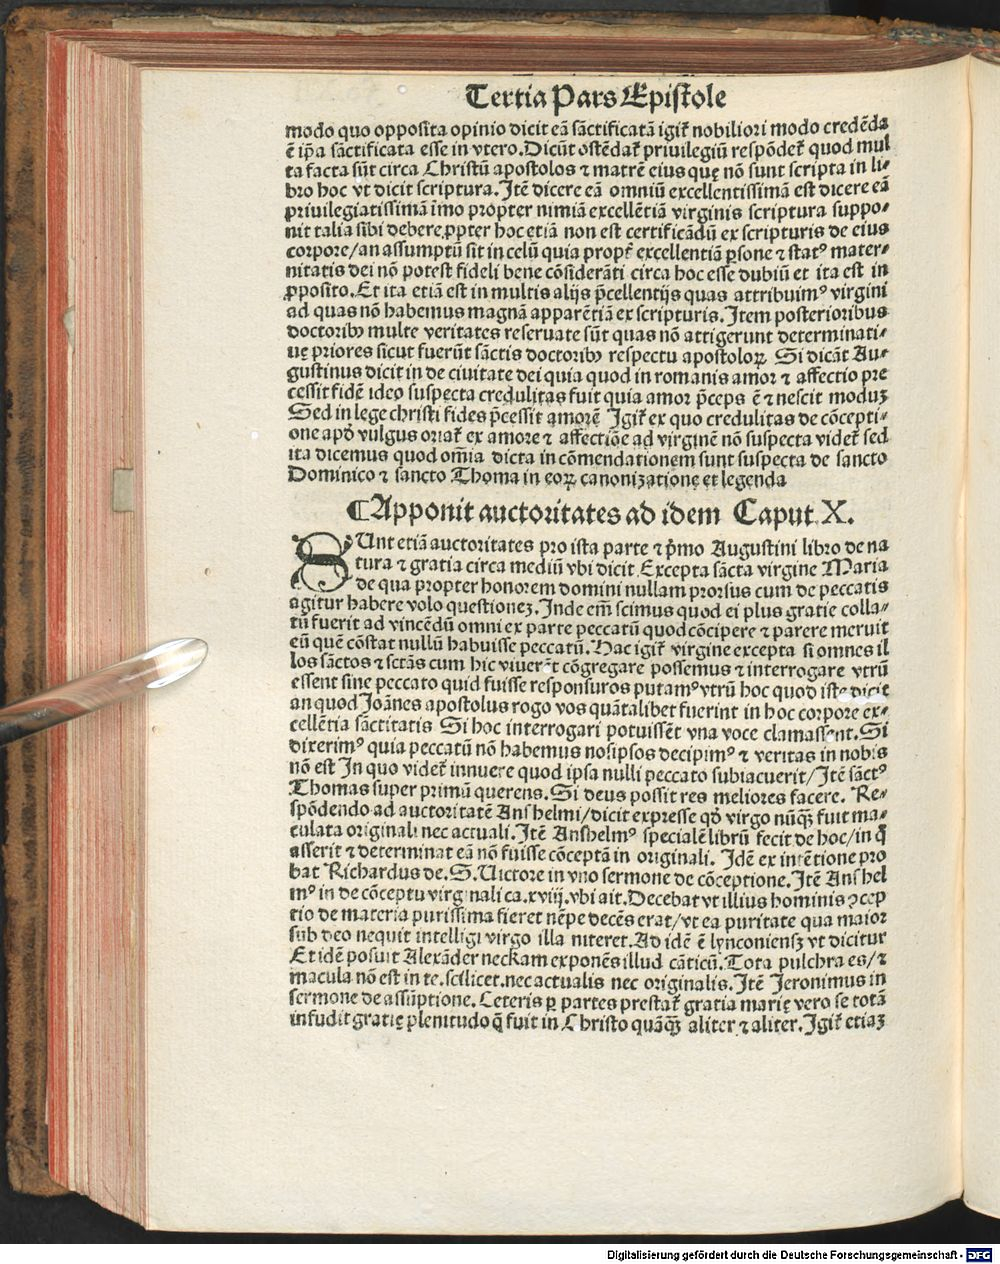 Tertia Pars Epistole
modo quo opposita opinio dicit eā sāctificatā igit̄ nobiliori modo credēda
ē ip̄a sāctificata esse in vtero. Dicūt ostēdat̄ priuilegiū respōdet̄ quod mul
ta facta sūt circa Christū apostolos ⁊ matrē eius quę nō sunt scripta in li⸗
bro hoc vt dicit scriptura. Itē dicere eā omniū excellentissimā est dicere eā
priuilegiatissimā īmo propter nimiā excellētiā virginis scriptura suppo⸗
nit talia sibi debere ꝓpter hoc etiā non est certificādū ex scripturis de eius
corpore/an assumptū sit in celū quia propt̄ excellentiā ꝑsone ⁊ statꝰ mater⸗
nitatis dei nō potest fideli bene cōsiderāti circa hoc esse dubiū et ita est in
ꝓposito. Et ita etiā est in multis alijs p̄cellentijs quas attribuimꝰ virgini
ad quas nō habemus magnā apparētiā ex scripturis. Item posterioribus
doctoribꝫ multe veritates reseruate sūt quas nō attigerunt determinati⸗
uę priores sicut fuerūt sāctis doctoribꝫ respectu apostoloꝝ Si dicāt Au⸗
gustinus dicit in de ciuitate dei quia quod in romanis amor ⁊ affectio pre
cessit fidē ideo suspecta credulitas fuit quia amor p̄ceps ē ⁊ nescit moduꝫ
Sed in lege christi fides p̄cessit amorē Igit̄ ex quo credulitas de cōcepti⸗
one apd̄ vulgus oriat̄ ex amore ⁊ affectiōe ad virginē nō suspecta videt̄ sed
ita dicemus quod om̄ia dicta in cōmendationem sunt suspecta de sancto
Dominico ⁊ sancto Thoma in eoꝝ canonizatione et legenda
¶Apponit auctoritates ad idem Caput X.
SUnt etiā auctoritates pro ista parte ⁊ p̄mo Augustini libro de na
tura ⁊ gratia circa mediū vbi dicit Excepta sācta virgine Maria
de qua propter honorem domini nullam prorsus cum de peccatis
agitur habere volo questioneꝫ. Inde em̄ scimus quod ei plus gratie colla⸗
tū fuerit ad vincēdū omni ex parte peccatū quod cōcipere ⁊ parere meruit
eū quē cōstat nullū habuisse peccatū. Hac igit̄ virgine excepta si omnes il
los sāctos ⁊ sctās cum hic viuerēt cōgregare possemus ⁊ interrogare vtrū
essent sine peccato quid fuisse responsuros putamꝰ vtrū hoc quod iste dicit
an quod Joānes apostolus rogo vos quātalibet fuerint in hoc corpore ex⸗
cellētia sāctitatis Si hoc interrogari potuissēt vna voce clamassent. Si
dixerimꝰ quia peccatū nō habemus nosipsos decipimꝰ ⁊ veritas in nobis
nō est In quo videt̄ innuere quod ipsa nulli peccato subiacuerit/Itē sāctꝰ
Thomas super primū querens. Si deus possit res meliores facere. Re⸗
spōdendo ad auctoritatē Anshelmi/dicit expresse qd̄ virgo nūqꝫ fuit ma⸗
culata originali nec actuali. Itē Anshelmꝰ specialē librū fecit de hoc/in q̄
asserit ⁊ determinat eā nō fuisse cōceptā in originali. Idē ex intētione pro
bat Richardus de. S. Uictore in vno sermone de cōceptione. Itē Anshel
mꝰ in de cōceptu virginali ca. xviij. vbi ait. Decebat vt illius hominis ꝯcep
tio de materia purissima fieret nēpe decēs erat/vt ea puritate qua maior
sub deo nequit intelligi virgo illa niteret. Ad idē ē lynconiensꝫ vt dicitur
Et idē posuit Alexāder neckam exponēs illud cāticū. Tota pulchra es/⁊
macula nō est in te. scilicet. nec actualis nec originalis. Itē Jeronimus in
sermone de assūptione. Ceteris ꝑ partes prestat̄ gratia marię vero se totā
infudit gratię plenitudo q̄ fuit in Christo quāqꝫ aliter ⁊ aliter. Igit̄ etiaꝫ
Digitalisierung gefördert durch die Deutsche Forschungsgemeinschaft - DFG